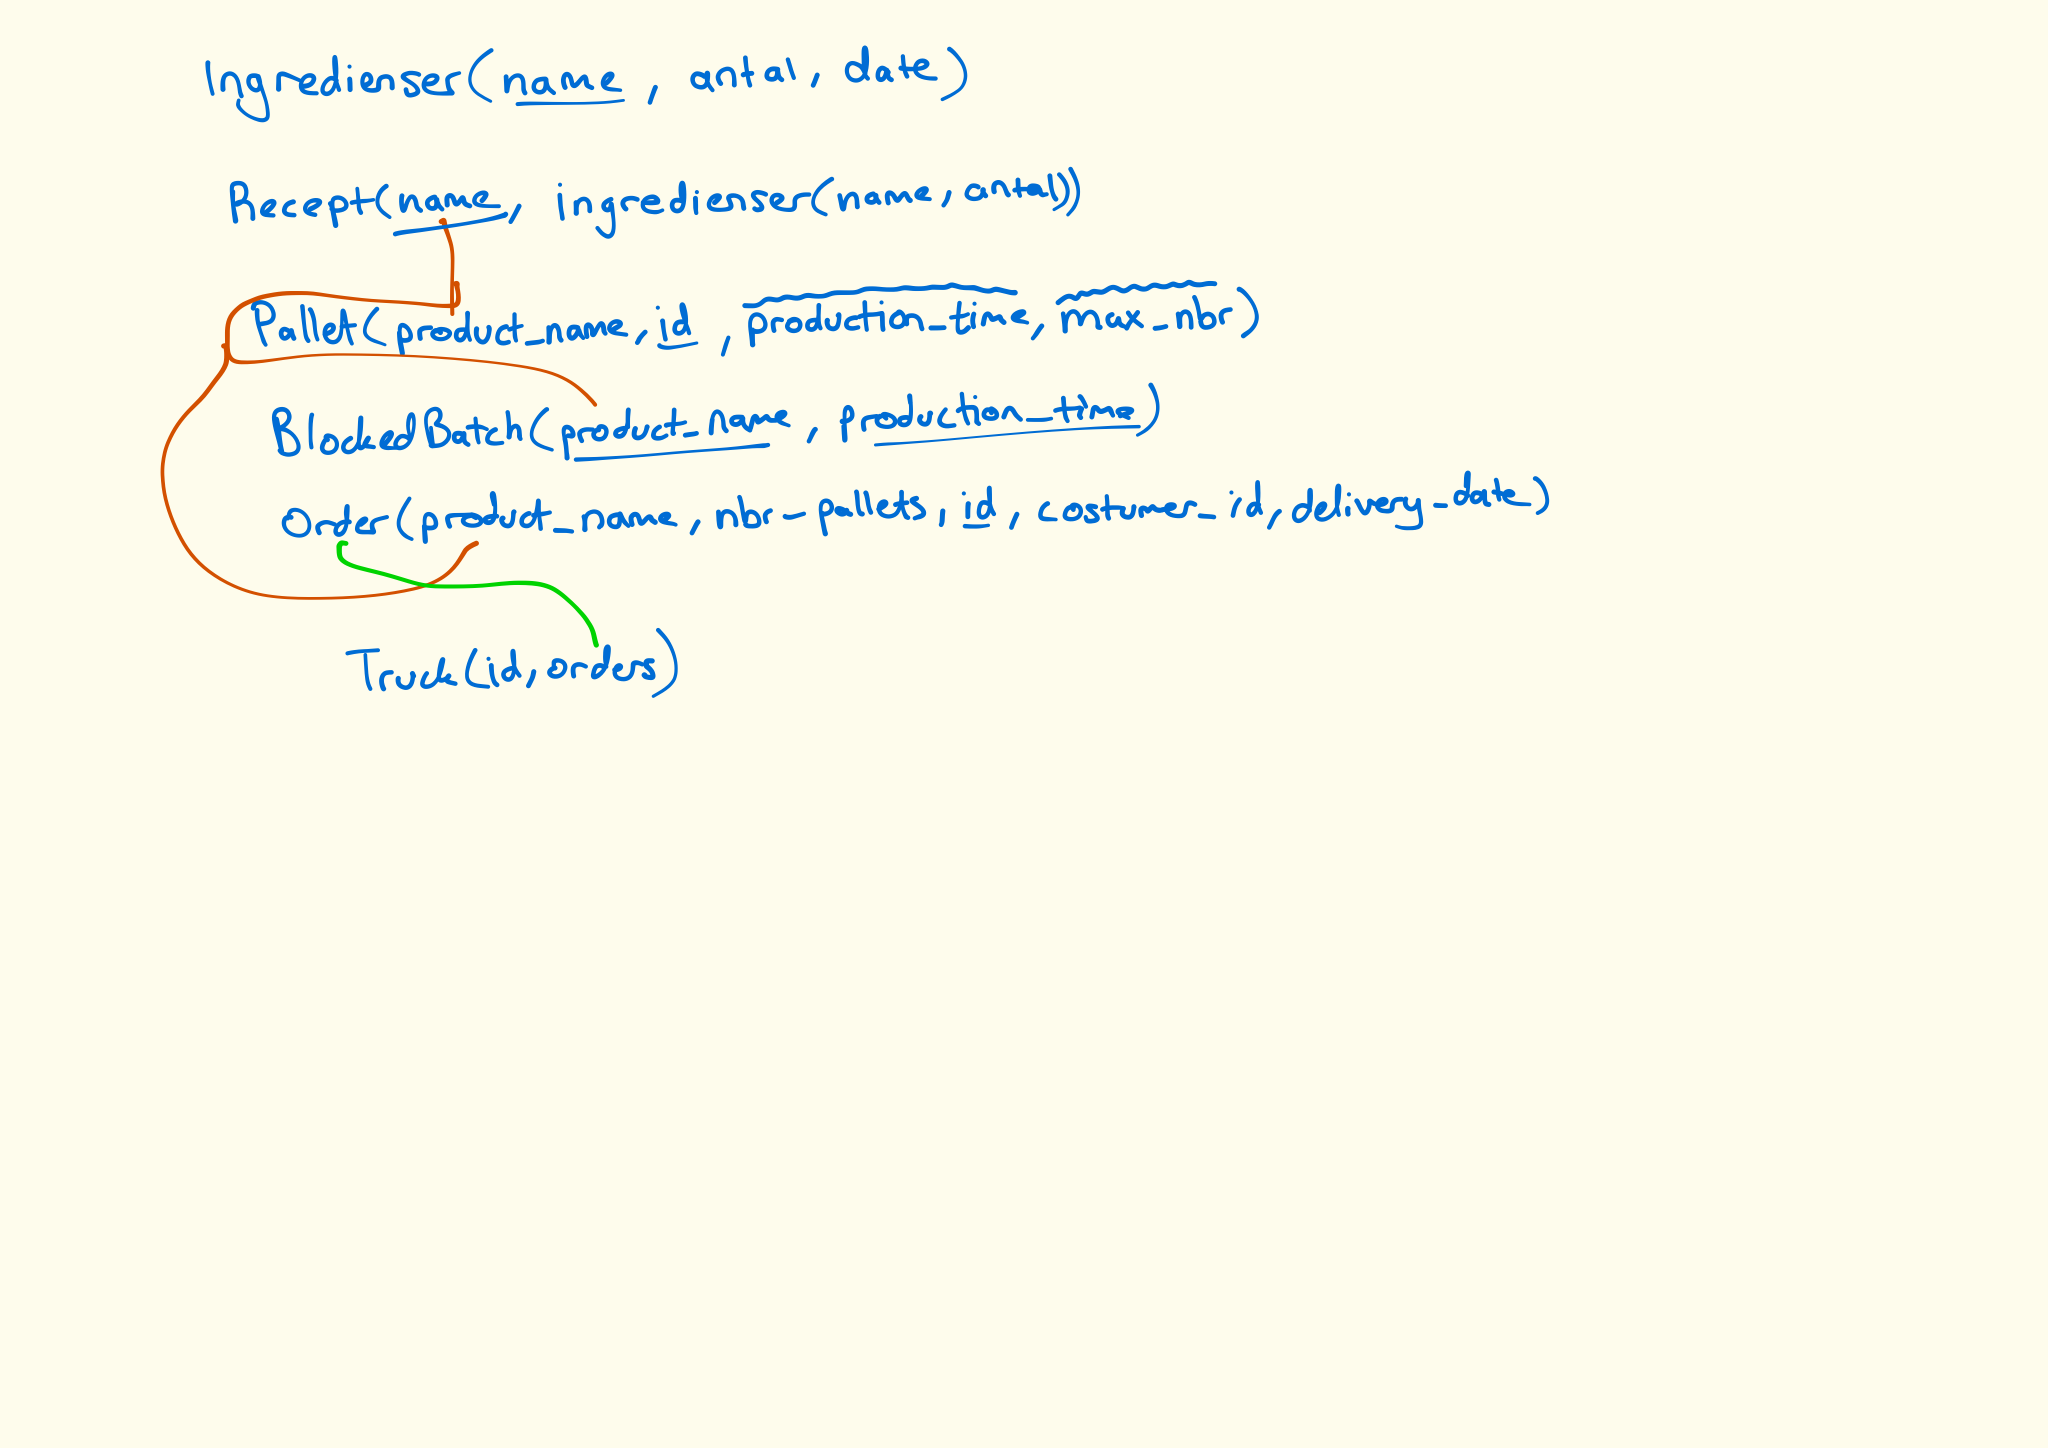 Ingredienser(name, antal, date)
Recept(name, ingredienser(name, antal))
Pallet(product_name, id, production_time, max_nbr)
BlockedBatch(product_name, production_time)
Order(product_name, nbr-pallets, id, costumer_id, delivery_date)
Truck(id, orders)